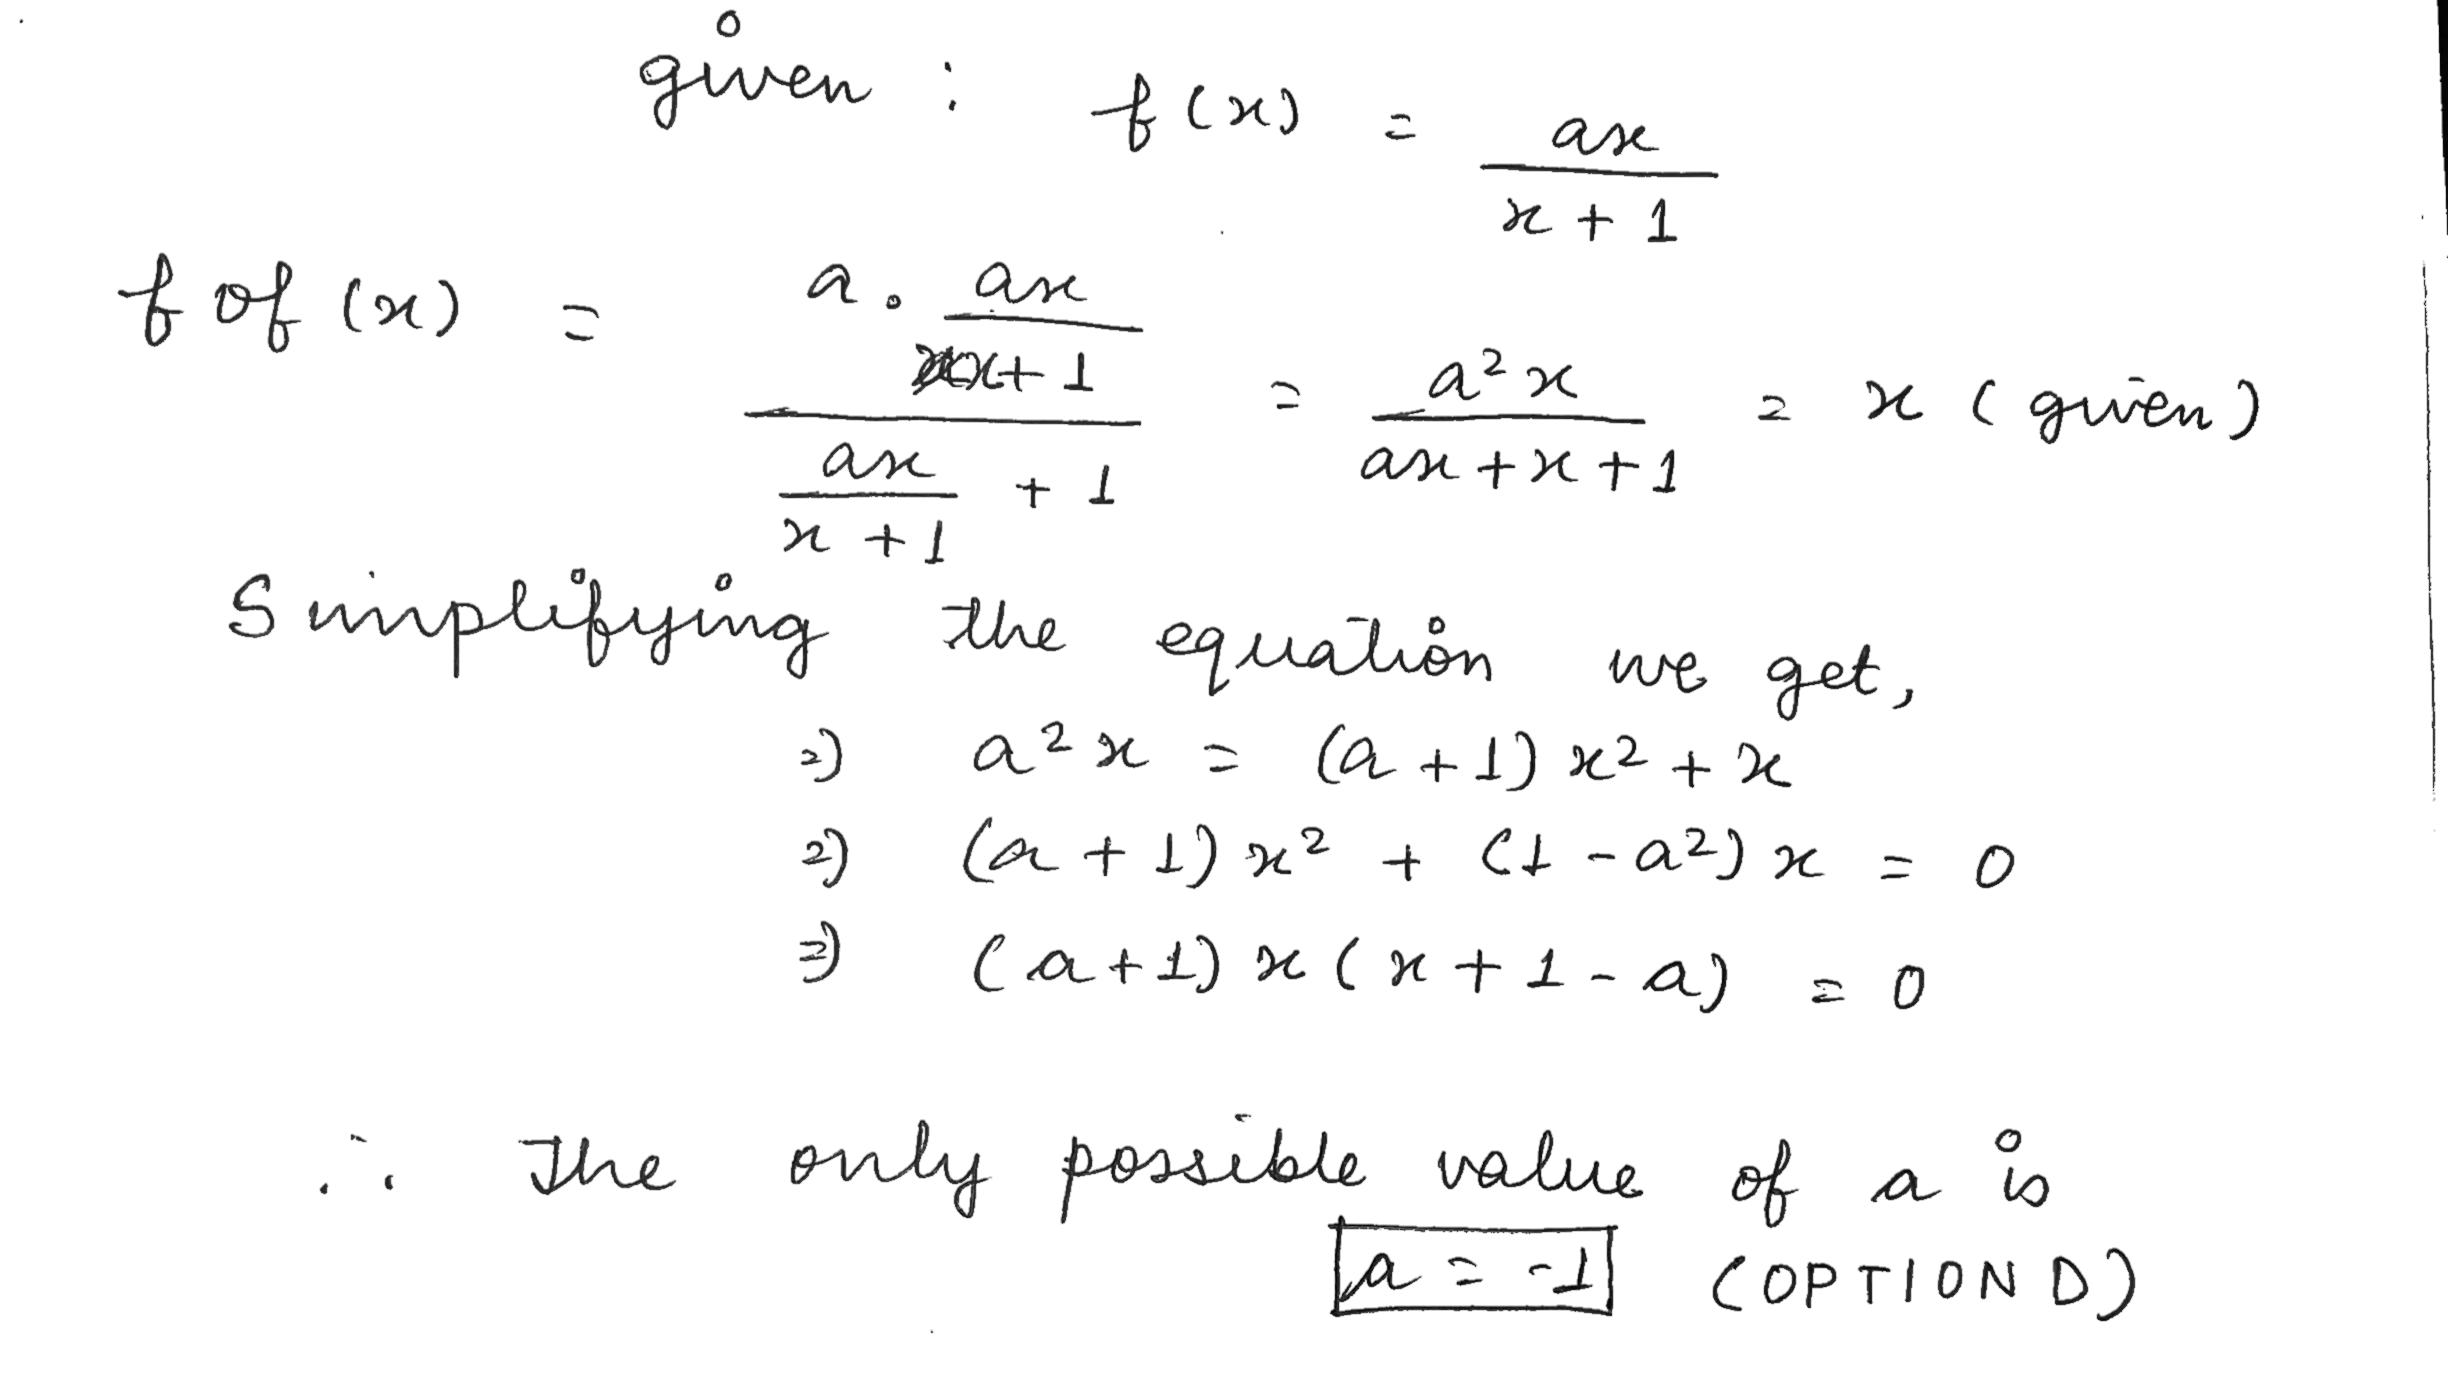 given : f(x) = ax / x + 1
f o f (x) = (a . ax / x + 1) / (ax / x + 1 + 1) = a²x / ax + x + 1 = x (given)
Simplifying the equation we get,
⇒ a²x = (a + 1) x² + x
⇒ (a + 1) x² + (1 - a²) x = 0
⇒ (a + 1) x (x + 1 - a) = 0
∴ The only possible value of a is
a = -1 (OPTION D)